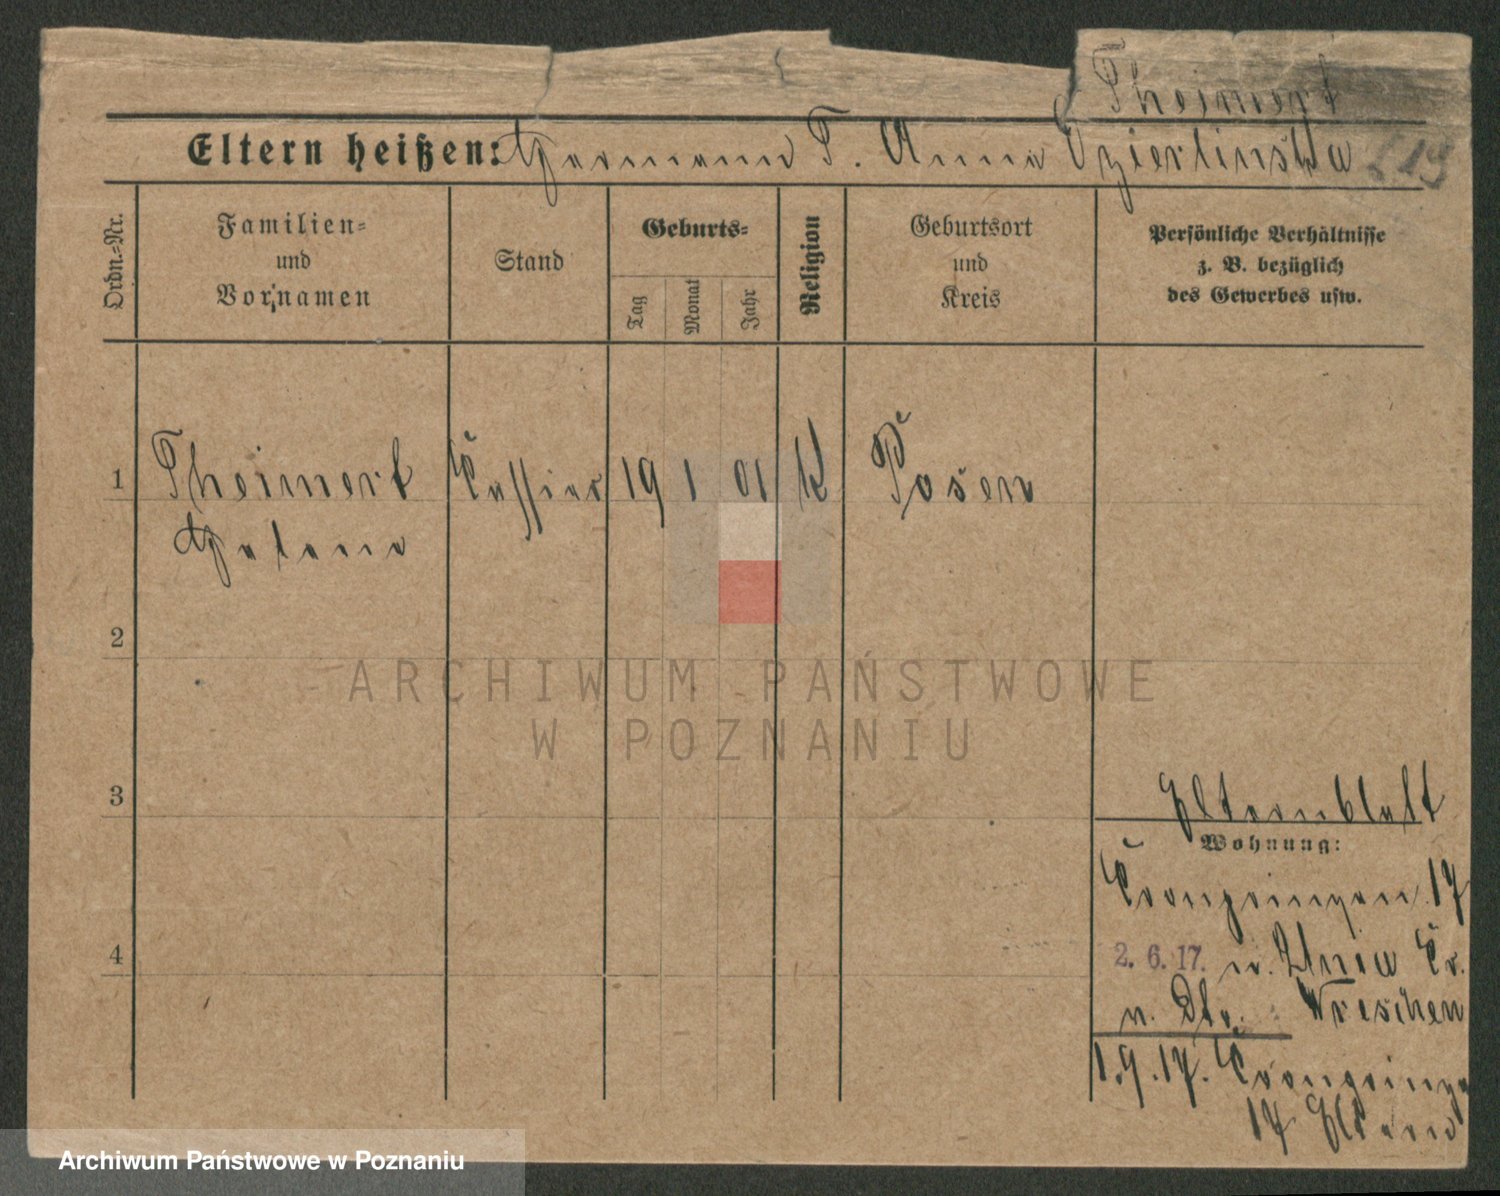 Theimert
Eltern heißen: Hermann T. Anna Dzierlinska
Ordn.-Nr.
Familien-
und
Vornamen
Stand
Geburts-
Tag
Monat
Jahr
Religion
Geburtsort
und
Kreis
Persönliche Verhältnisse
z. B. bezüglich
des Gewerbes usw.
1 Theimert 19 1 01 K Posen
Helene
2
3
4
Elternblatt
Wohnung:
Kronprinzen 17
2. 6. 17. n. Kr.
n. Str. Wreschen
1.9.17. Kronprinz
17 Eltern
ARCHIWUM PAŃSTWOWE
W POZNANIU
Archiwum Państwowe w Poznaniu